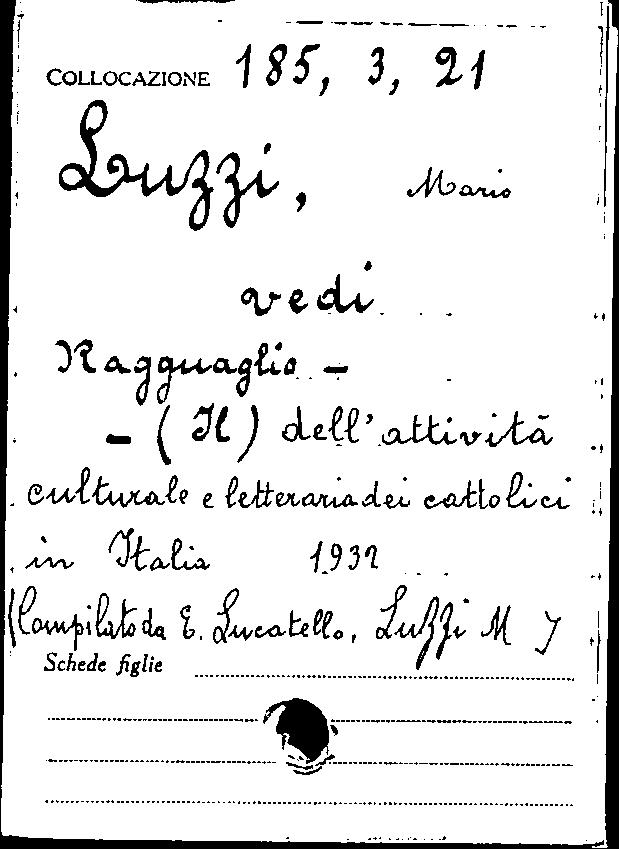 COLLOCAZIONE 185, 3, 21
Luzzi, Mario
vedi
Ragguaglio -
- (Il) dell'attività
culturale e letteraria dei cattolici
in Italia 1932
(Compilato da E. Lucatello, Luzzi M )
Schede figlie